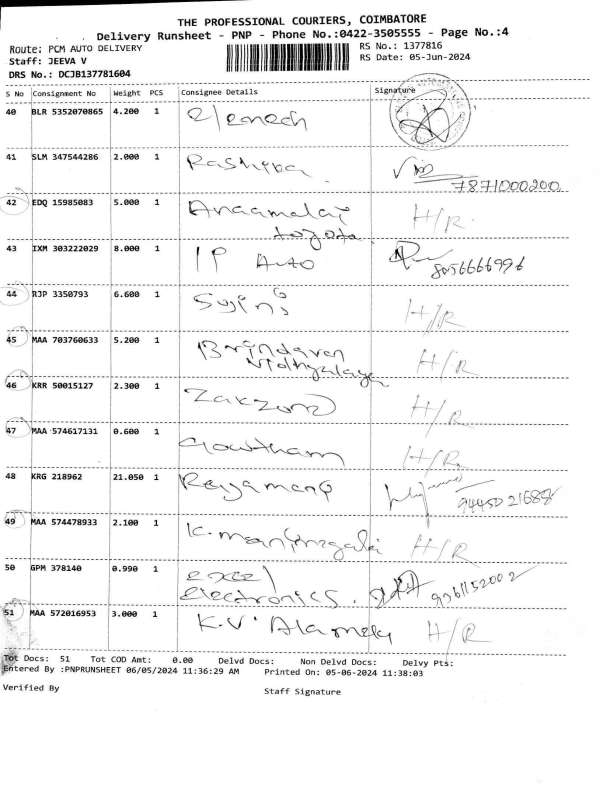 THE PROFESSIONAL COURIERS, COIMBATORE
Delivery Runsheet - PNP - Phone No.:0422-3505555 - Page No.:4
Route: PCM AUTO DELIVERY
RS No.: 1377816
Staff: JEEVA V
RS Date: 05-Jun-2024
DRS No.: DCJB137781604
S No Consignment No Weight PCS Consignee Details Signature
40 BLR 5352070865 4.200 1
41 SLM 347544286 2.000 1
7871000200
42 EDQ 15985083 5.000 1 Anaamalai H/R
toyota
43 IXM 303222029 8.000 1 IP Auto 8056666996
44 RJP 3350793 6.600 1 H/R
45 MAA 703760633 5.200 1 Brindavan H/R
Vidhyalaya
46 KRR 50015127 2.300 1 H/R
47 MAA 574617131 0.600 1 Gowtham H/R
48 KRG 218962 21.050 1
49 MAA 574478933 2.100 1 H/R
50 GPM 378140 0.990 1 excel
electronics.
51 MAA 572016953 3.000 1 K.V. H/R
Tot Docs: 51 Tot COD Amt: 0.00 Delvd Docs: Non Delvd Docs: Delvy Pts:
Entered By :PNPRUNSHEET 06/05/2024 11:36:29 AM Printed On: 05-06-2024 11:38:03
Verified By
Staff Signature